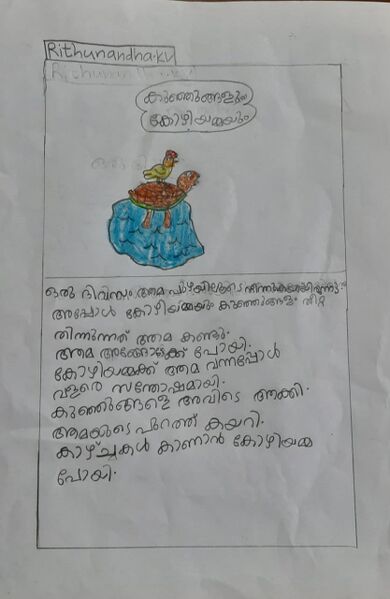 Rithunandha.KV
കുഞ്ഞുങ്ങളും
കോഴിയമ്മയും
ഒരു ദിവസം ആമ പുഴയിലൂടെ നീന്തുകയായിരുന്നു.
അപ്പോൾ കോഴിയമ്മയും കുഞ്ഞുങ്ങളും തീറ്റ
തിന്നുന്നത് ആമ കണ്ടു.
ആമ അങ്ങോട്ടേക്ക് പോയി.
കോഴിയമ്മക്ക് ആമ വന്നപ്പോൾ
വളരെ സന്തോഷമായി.
കുഞ്ഞുങ്ങളെ അവിടെ ആക്കി.
ആമയുടെ പുറത്ത് കയറി.
കാഴ്ച്ചകൾ കാണാൻ കോഴിയമ്മ
പോയി.